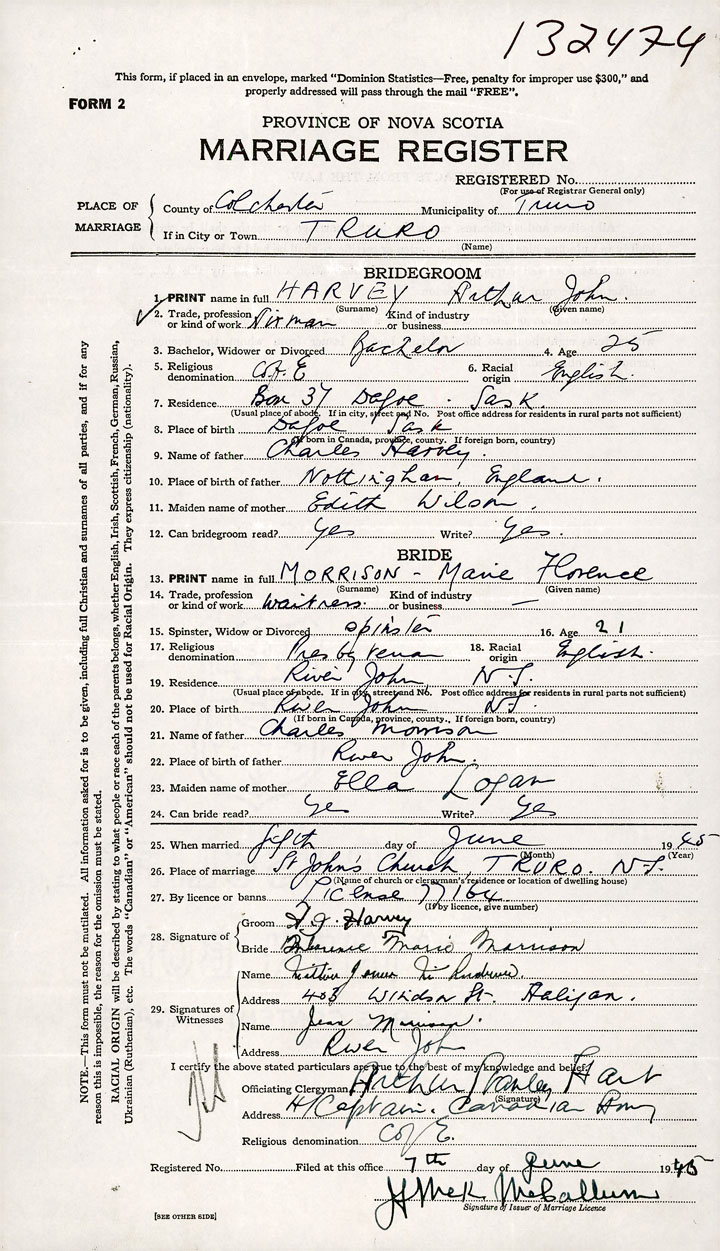 132474
This form, if placed in an envelope, marked "Dominion Statistics—Free, penalty for improper use $300," and
properly addressed will pass through the mail "FREE".
FORM 2
PROVINCE OF NOVA SCOTIA
MARRIAGE REGISTER
REGISTERED No.
(For use of Registrar General only)
PLACE OF MARRIAGE
County of Colchester Municipality of Truro
If in City or Town TRURO
(Name)
BRIDEGROOM
1. PRINT name in full HARVEY Arthur John.
(Surname) (Given name)
2. Trade, profession or kind of work Kind of industry or business
3. Bachelor, Widower or Divorced Bachelor 4. Age 25
5. Religious denomination C of E 6. Racial origin English.
7. Residence Box 37 Dafoe. Sask.
(Usual place of abode. If in city, street and No. Post office address for residents in rural parts not sufficient)
8. Place of birth Dafoe Sask
(If born in Canada, province, county. If foreign born, country)
9. Name of father Charles Harvey.
10. Place of birth of father Nottingham, England.
11. Maiden name of mother Edith Wilson.
12. Can bridegroom read? Yes Write? Yes.
BRIDE
13. PRINT name in full MORRISON - Marie Florence
(Surname) (Given name)
14. Trade, profession or kind of work waitress. Kind of industry or business —
15. Spinster, Widow or Divorced spinster 16. Age 21
17. Religious denomination Presbyterian 18. Racial origin English.
19. Residence River John N.S.
(Usual place of abode. If in city, street and No. Post office address for residents in rural parts not sufficient)
20. Place of birth River John N.S.
(If born in Canada, province, county. If foreign born, country)
21. Name of father Charles Morrison
22. Place of birth of father River John.
23. Maiden name of mother Ella Logan
24. Can bride read? Yes Write? Yes
25. When married fifth day of June 1945
(Month) (Year)
26. Place of marriage St John's Church, TRURO. N.S.
(Name of church or clergyman's residence or location of dwelling house)
27. By licence or banns License 77164
(If by licence, give number)
28. Signature of
Groom A. J. Harvey
Bride Florence Marie Morrison
29. Signatures of Witnesses
Name
Address 403 Windsor St. Halifax.
Name Jean Morrison.
Address River John
I certify the above stated particulars are true to the best of my knowledge and belief.
Officiating Clergyman Arthur Stanley Hart
(Signature)
Address H/Captain. Canadian Army
Religious denomination C of E.
Registered No. Filed at this office 7th day of June 1945
J McK McCallum
Signature of Issuer of Marriage Licence
[SEE OTHER SIDE]
NOTE.—This form must not be mutilated. All information asked for is to be given, including full Christian and surnames of all parties, and if for any
reason this is impossible, the reason for the omission must be stated.
RACIAL ORIGIN will be described by stating to what people or race each of the parents belongs, whether English, Irish, Scottish, French, German, Russian,
Ukrainian (Ruthenian), etc. The words "Canadian" or "American" should not be used for Racial Origin. They express citizenship (nationality).